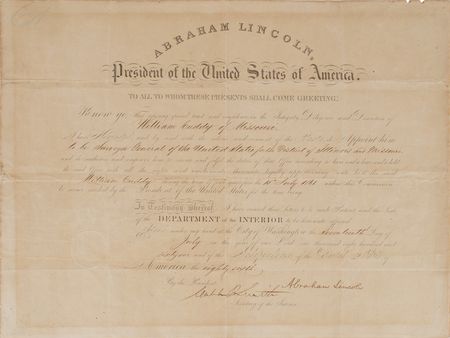 ABRAHAM LINCOLN,
President of the United States of America.
TO ALL TO WHOM THESE PRESENTS SHALL COME GREETING:
Know ye that special trust and confidence in the Integrity Diligence and Discretion of
William Cuddy of Missouri
I have and by and with the advice and consent of the Senate do Appoint him
to be Surveyor General of the United States for the District of Illinois and Missouri
and do authorize and empower him to execute and fulfil the duties of that Office according to law and to have and to hold
the said office with all the rights and emoluments thereunto legally appertaining unto him the said
William Cuddy July 1861 unless this Commission
be sooner revoked by the President of the United States for the time being.
In Testimony Whereof, I have caused these Letters to be made Patent and the Seal
of the DEPARTMENT of the INTERIOR to be hereunto affixed.
Given under my hand at the City of Washington the Day of
July in the year of our Lord one thousand eight hundred and
sixty one and of the Independence of the United States of
America the eighty sixth.
By the President Abraham Lincoln
Caleb B. Smith
Secretary of the Interior